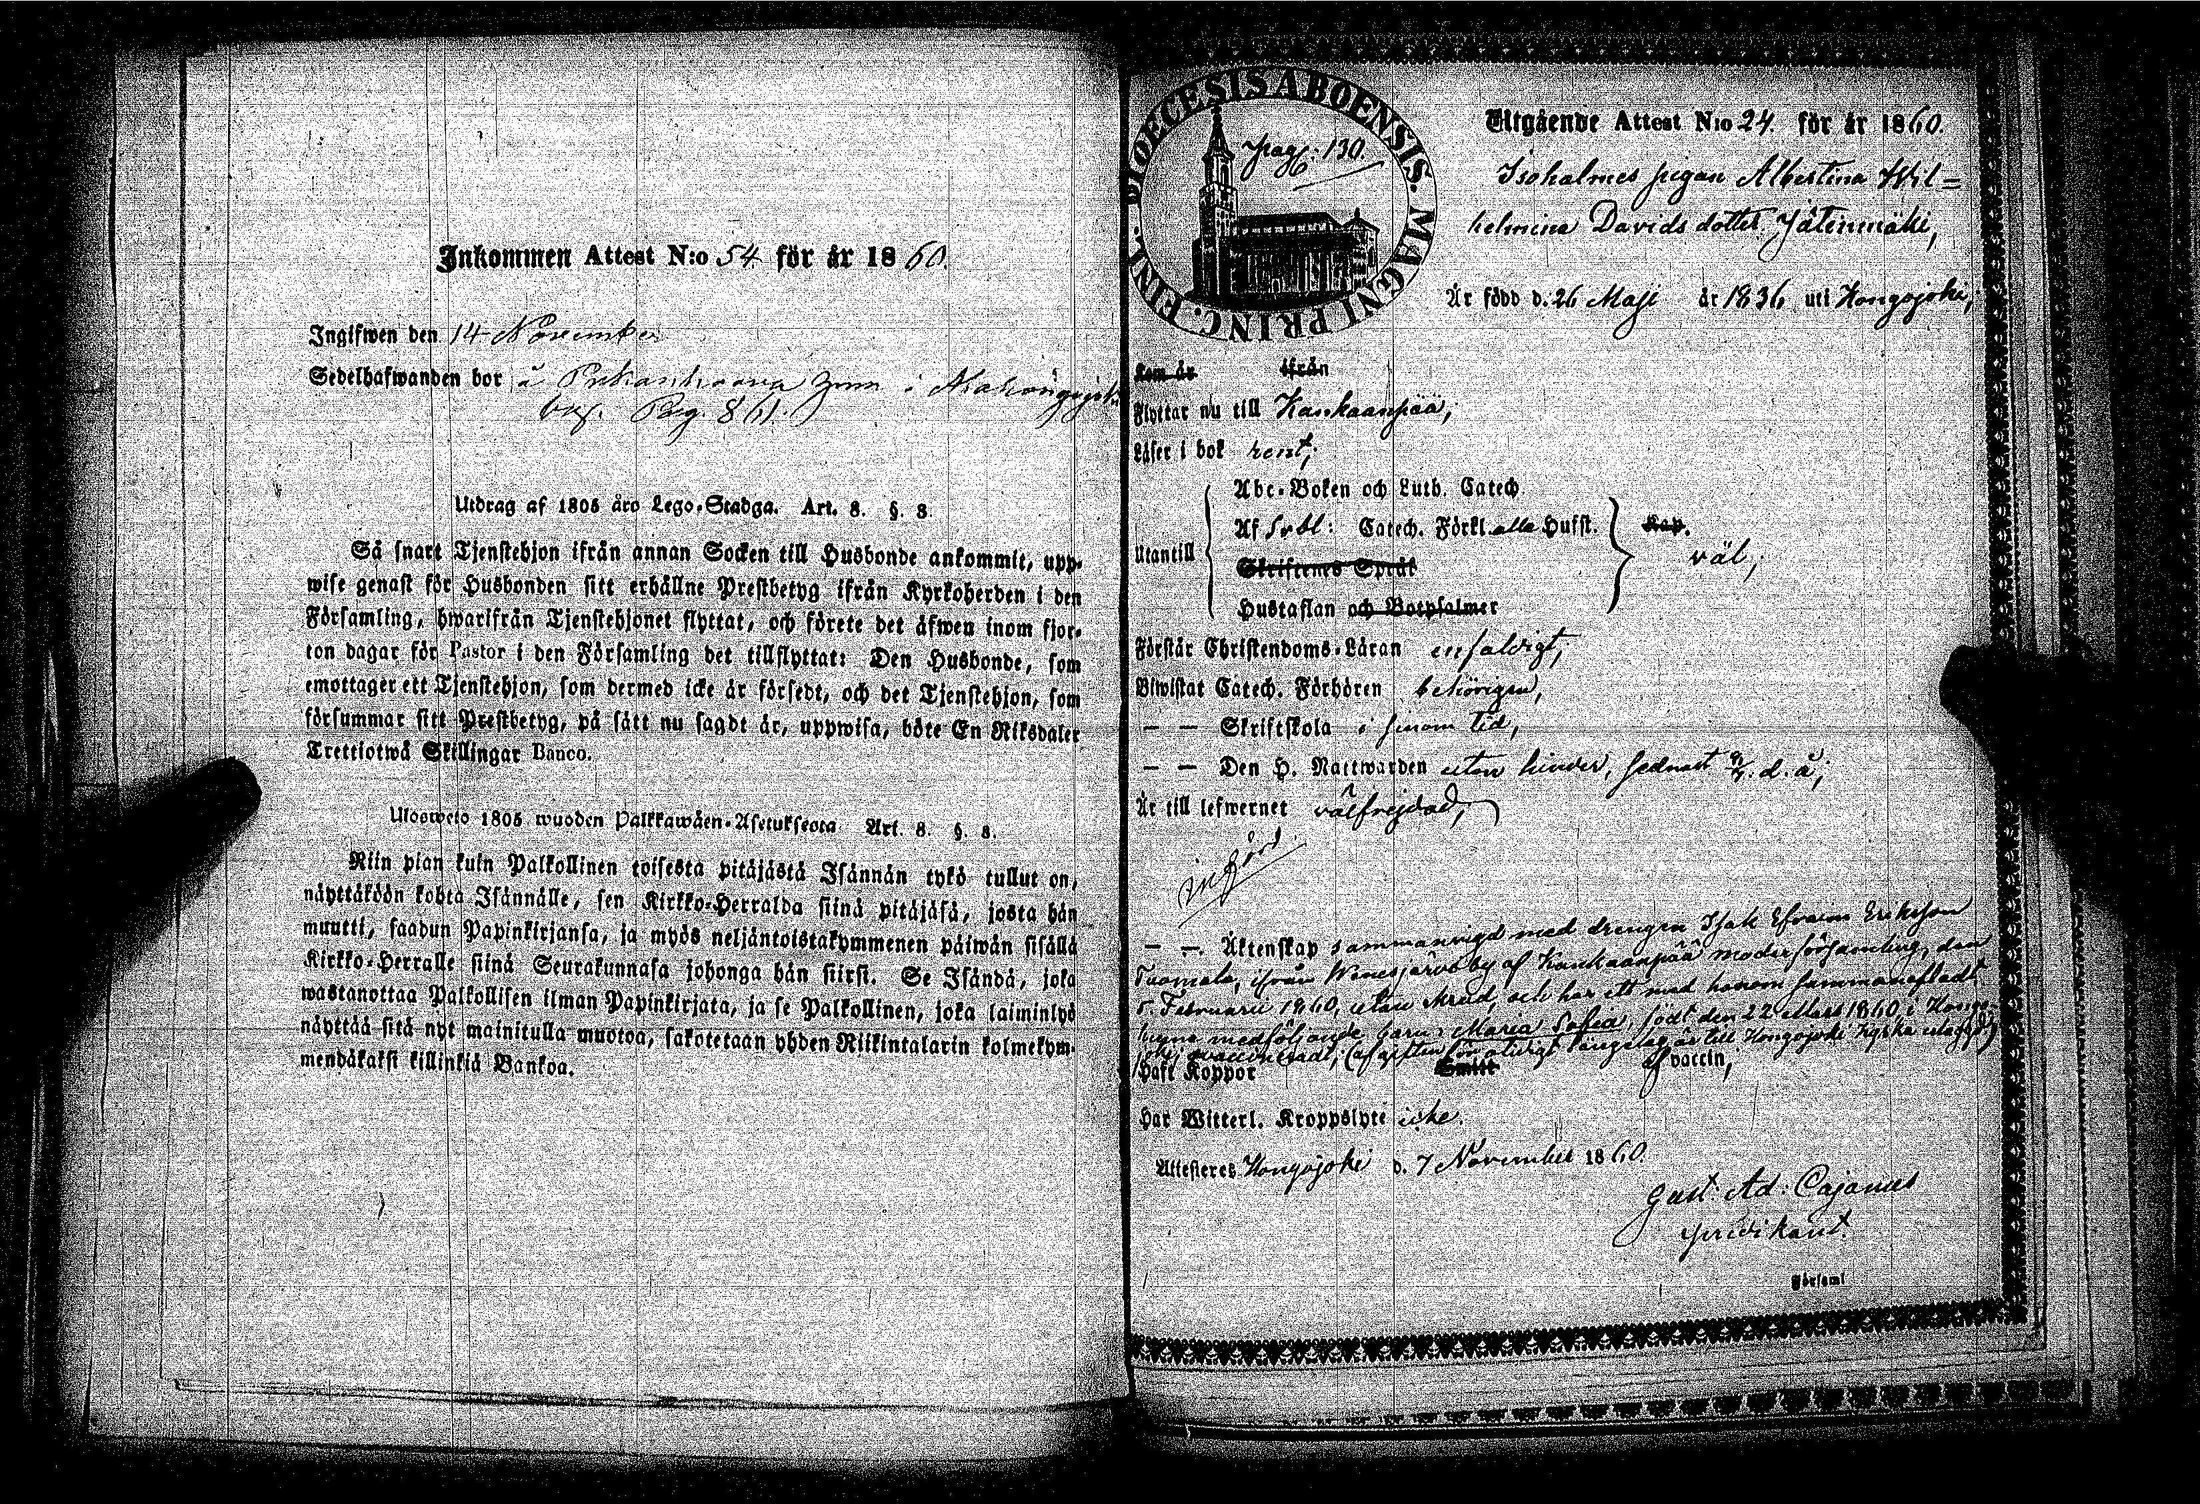 Inkommen Attest N:o 54. för år 1860.
Ingifwen den 14 November
Sedelhafwanden bor å
Pag. 861.
Utdrag af 1805 års Lego-Stadga. Art. 8. §. 8.
Så snart Tjenstehjon ifrån annan Socken till Husbonde ankommit, upp-
wise genast för Husbonden sitt erhållne Prestbetyg ifrån Kyrkoherden i den
Församling, hwarifrån Tjenstehjonet flyttat, och förete det äfwen inom fjor-
ton dagar för Pastor i den Församling det tillflyttat: Den Husbonde, som
emottager ett Tjenstehjon, som dermed icke är försedt, och det Tjenstehjon, som
försummar sitt Prestbetyg, på sätt nu sagdt är, uppwisa, böte En Riksdaler
Trettiotwå Skillingar Banco.
Ulosweto 1805 wuoden Palkkawäen-Asetuksesta Art. 8. §. 8.
Niin pian kuin Palkollinen toisesta pitäjästä Isännän tykö tullut on,
näyttäköön kohta Isännälle, sen Kirkko-Herralda siinä pitäjäsä, josta hän
muutti, saadun Papinkirjansa, ja myös neljäntoistakymmenen päiwän sisällä
Kirkko-Herralle siinä Seurakunnasa johonga hän siirsi. Se Isändä, joka
wastanottaa Palkollisen ilman Papinkirjata, ja se Palkollinen, joka laiminlyö
näyttää sitä nyt mainitulla muotoa, sakotetaan yhden Riikintalarin kolmekym-
mendäkaksi killinkiä Bankoa.
DIOECESIS ABOENSIS. MAGNI PRINC. FINL.
pag: 130.
Utgående Attest N:o 24. för år 1860.
Isoholmes pigan Albertina Wil=
helmina Davids dotter Jätinmäki,
Är född d. 26 Maji år 1836 uti Hongojoki,
kom år ifrån
Flyttar nu till Kankaanpää,
Läser i bok rent,
Utantill
Abc-Boken och Luth. Catech
Af Svbl: Catech. Förkl. alla Hufst.
Skriftenes Språk
Hustaflan och Botpsalmer
Kap.
väl,
Förstår Christendoms-Läran enfaldigt,
Biwistat Catech. Förhören behörigen,
— — Skriftskola i sinom tid,
— — Den H. Nattwarden utan hinder, sednast d. å,
Är till lefwernet välfrejdad,
— — Äktenskap sammanvigd med drengen Isak Efraim Eriksson
Tuomala, ifrån Wenesjärvi by af Kankaanpää moderförsamling, den
5. Februarii 1860, utan och har ett med honom sammanafladt
medföljande barn: Maria Sofia, född den 22 Mars 1860 i Hongo-
joki, till Hongojoki kyrka
Haft Koppor Smitt af vaccin,
Har Witterl. Kroppslyte icke.
Attesteres Hongojoki d. 7 November 1860.
Gust. Ad: Cajanus
predikant.
Församl